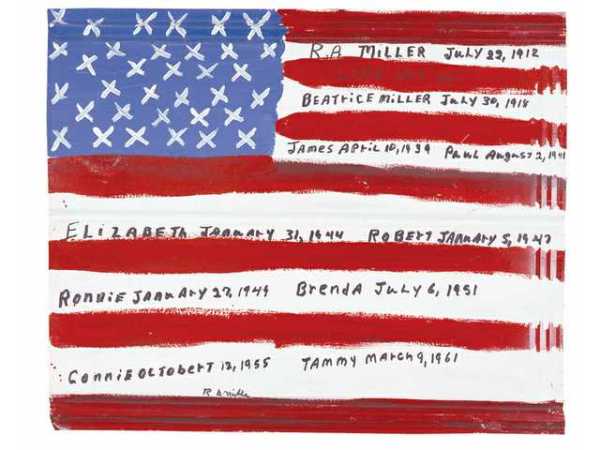 R.A MILLER JULY 22, 1912
BEATRICE MILLER JULY 30, 1918
JAMES APRIL 10, 1939 PAUL AUGUST 2, 1941
ELIZABETH JANUARY 31, 1944 ROBERT JANUARY 5, 1947
RONNIE JANUARY 27, 1949 BRENDA JULY 6, 1951
CONNIE OCTOBERT 12, 1955 TAMMY MARCH 9, 1961
R A Miller